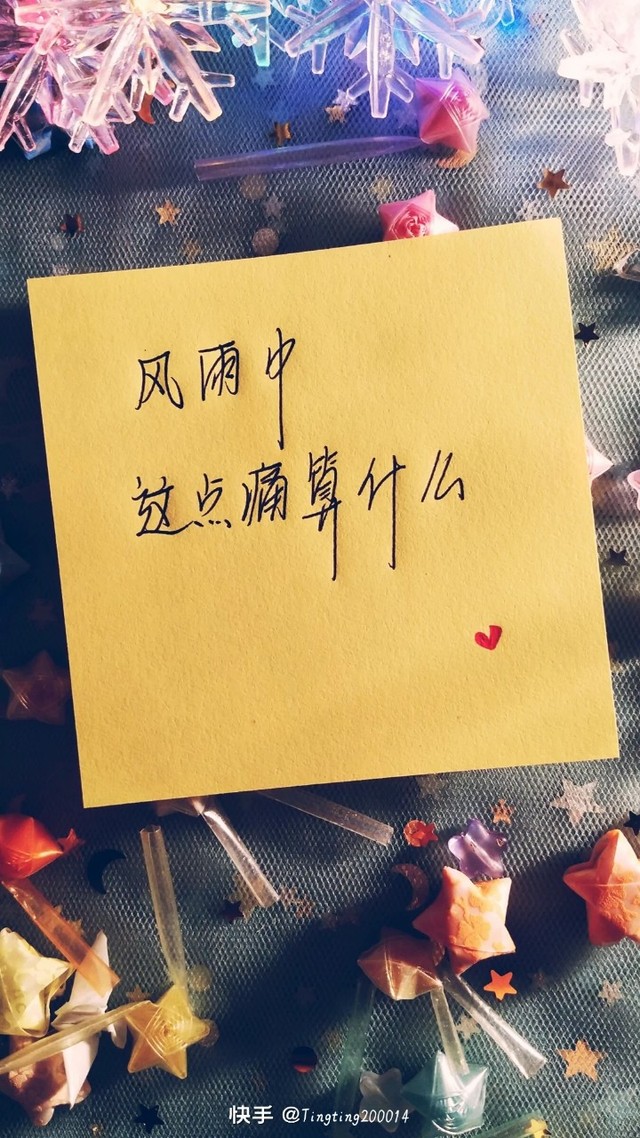 风雨中
这点痛算什么
快手 @Tingting200014